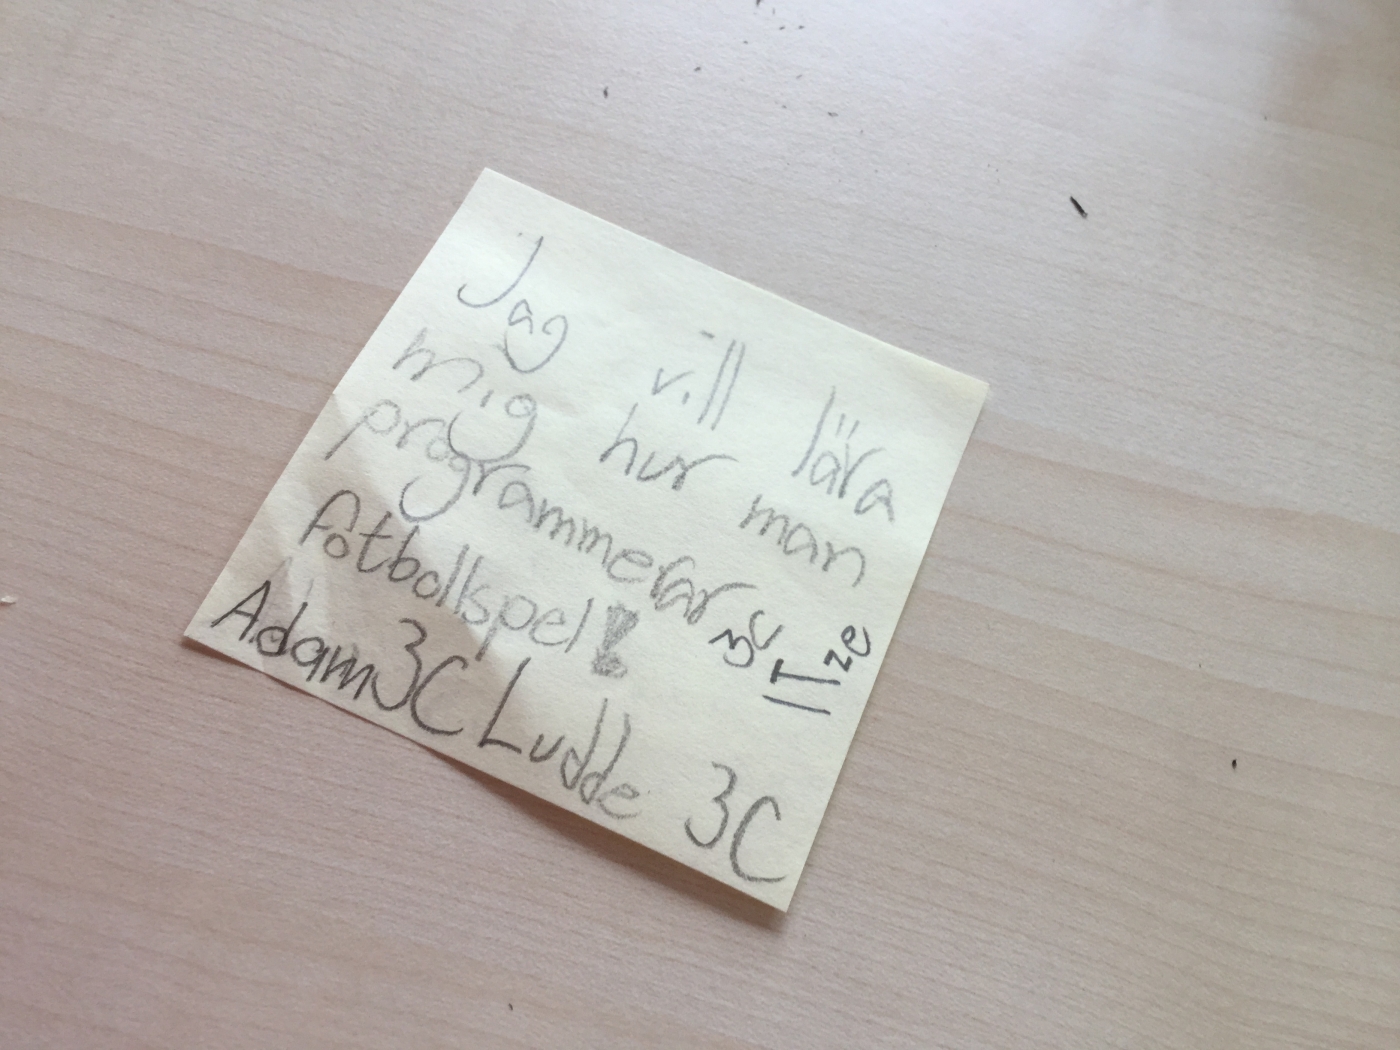 Jag vill lära
mig hur man
programmerar
fotbollspel!
Adam 3C Ludde 3C
3C